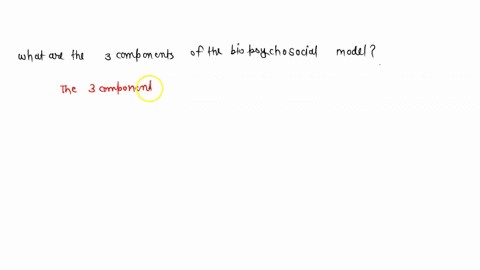 what are the 3 components of the biopsychosocial model?
The 3 componint